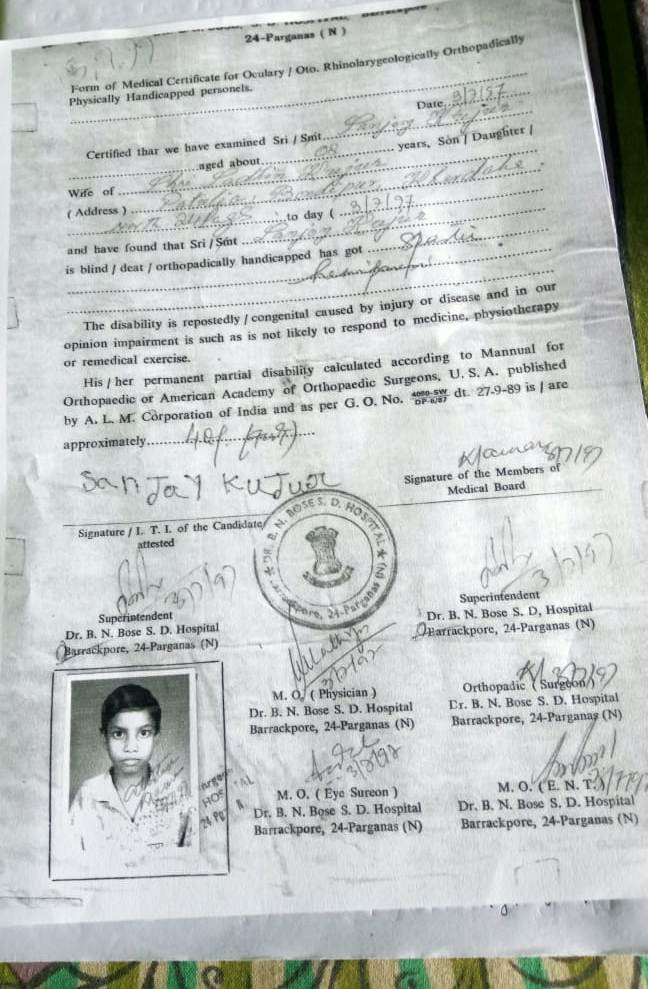 24-Parganas ( N )
Form of Medical Certificate for Oculary / Oto. Rhinolarygeologically Orthopadically
Physically Handicapped personels.
Date 3/7/97
Certified thar we have examined Sri / Smt. Sanjay Kujur
aged about 08 years, Son / Daughter /
Wife of
( Address )
to day ( 3/7/97
and have found that Sri / Smt Sanjay Kujur
is blind / deat / orthopadically handicapped has got Spastic
The disability is repostedly / congenital caused by injury or disease and in our
opinion impairment is such as is not likely to respond to medicine, physiotherapy
or remedical exercise.
His / her permanent partial disability calculated according to Mannual for
Orthopaedic or American Academy of Orthopaedic Surgeons, U. S. A. published
by A. L. M. Corporation of India and as per G. O. No. 4060-SW dt. 27-9-89 is / are
approximately
SanJay KuJur
3/7/97
Signature of the Members of
Medical Board
Signature / L. T. I. of the Candidate
attested
DR. B. N. BOSE S. D. HOSPITAL
Barrackpore, 24-Parganas (N)
3/7/97
Superintendent
Dr. B. N. Bose S. D. Hospital
Barrackpore, 24-Parganas (N)
3/7/97
Superintendent
Dr. B. N. Bose S. D, Hospital
Barrackpore, 24-Parganas (N)
3/7/97
M. O. ( Physician )
Dr. B. N. Bose S. D. Hospital
Barrackpore, 24-Parganas (N)
3/7/97
Orthopadic ( Surgeon )
Dr. B. N. Bose S. D. Hospital
Barrackpore, 24-Parganas (N)
M. O. ( Eye Sureon )
Dr. B. N. Bose S. D. Hospital
Barrackpore, 24-Parganas (N)
M. O. ( E. N. T. )
Dr. B. N. Bose S. D. Hospital
Barrackpore, 24-Parganas (N)